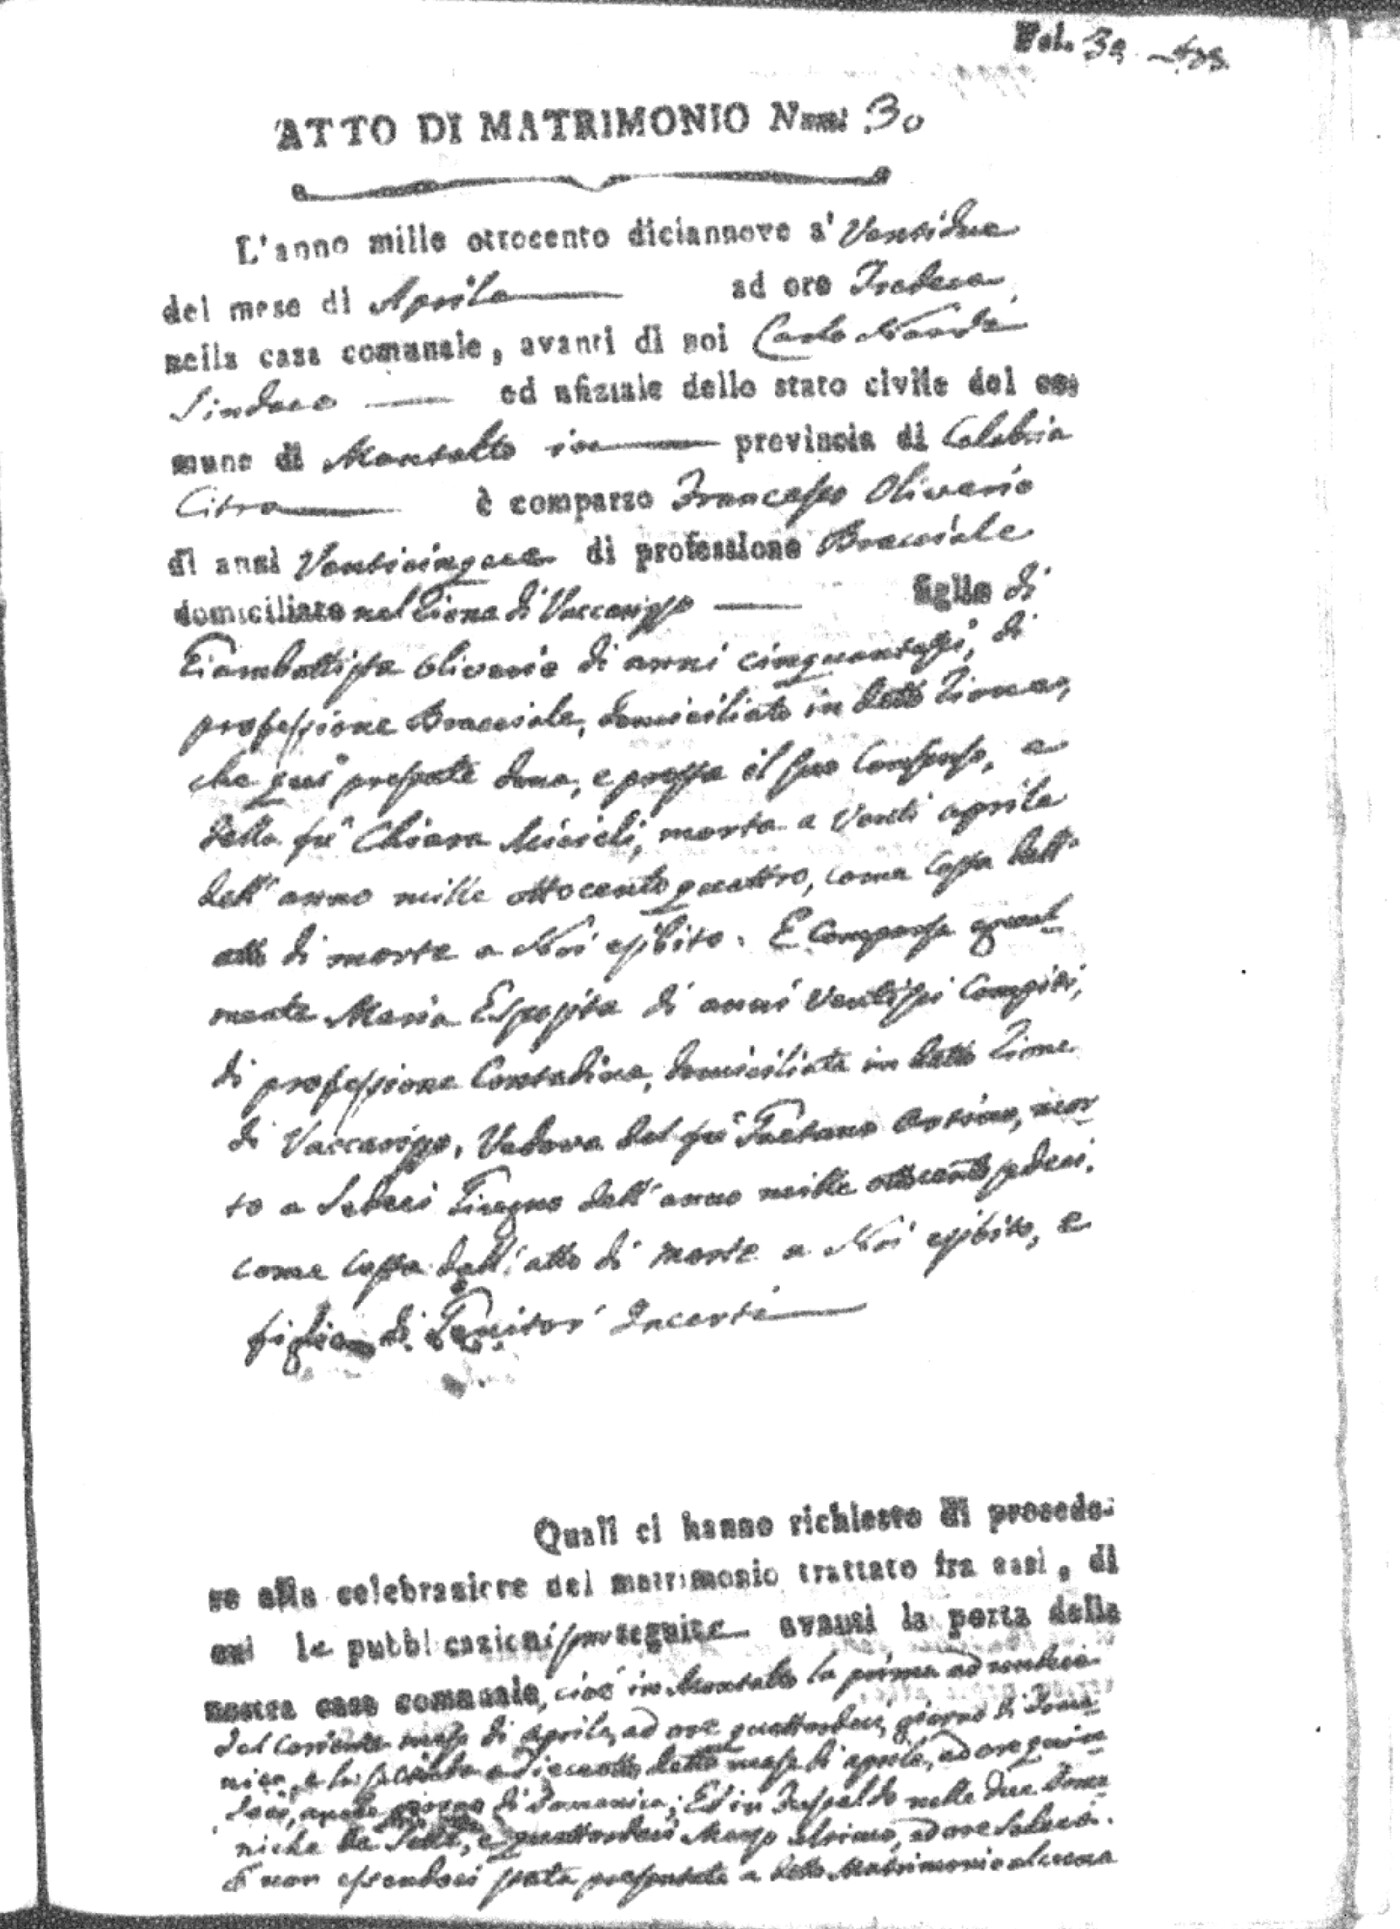 Fol. 39
ATTO DI MATRIMONIO Num. 30
L'anno mille ottocento diciannove a' Ventidue
del mese di Aprile ad ore Tredeci,
nella casa comunale, avanti di noi Carlo Nardi
Sindaco ed ufiziale dello stato civile del co-
mune di Montalto in provincia di Calabria
Citra è comparso Francesco Oliverio
di anni Venticinque di professione Bracciale
domiciliato nel Rione di Vaccarizzo figlio di
Giambattista Oliverio di anni cinquantasei, di
professione Bracciale, domiciliato in detto Rione,
che quì presente dona, e presta il suo Consenso, e
della fù Chiara Miceli, morta a Venti aprile
dell'anno mille ottocento quattro, come costa dall'
atto di morte a Noi esibito. E Comparsa egual-
mente Maria Esposita di anni Ventisei Compiti,
di professione Contadina, domiciliata in detto Rione
di Vaccarizzo, Vedova del fù Gaetano mor-
to a Sedeci Giugno dell'anno mille ottocento sedeci,
come costa dall'atto di morte a Noi esibito, e
figlia di Genitori Incerti
Quali ci hanno richiesto di procede-
re alla celebrazione del matrimonio trattato fra essi, di
cui le pubblicazioni son seguite avanti la porta della
nostra casa comunale, cioè in Montalto la prima ad undeci
del Corrente mese di Aprile, ad ore quattordeci, giorno di Dome-
nica, e la seconda a Dieciotto detto mese di aprile, ad ore quin-
deci, anche giorno di Domenica; Ed in nelle due Dome-
niche de' Sette, e quattordeci Marzo ultimo, ad ore Sedeci.
E non essendoci stata presentata a detto Matrimonio alcuna